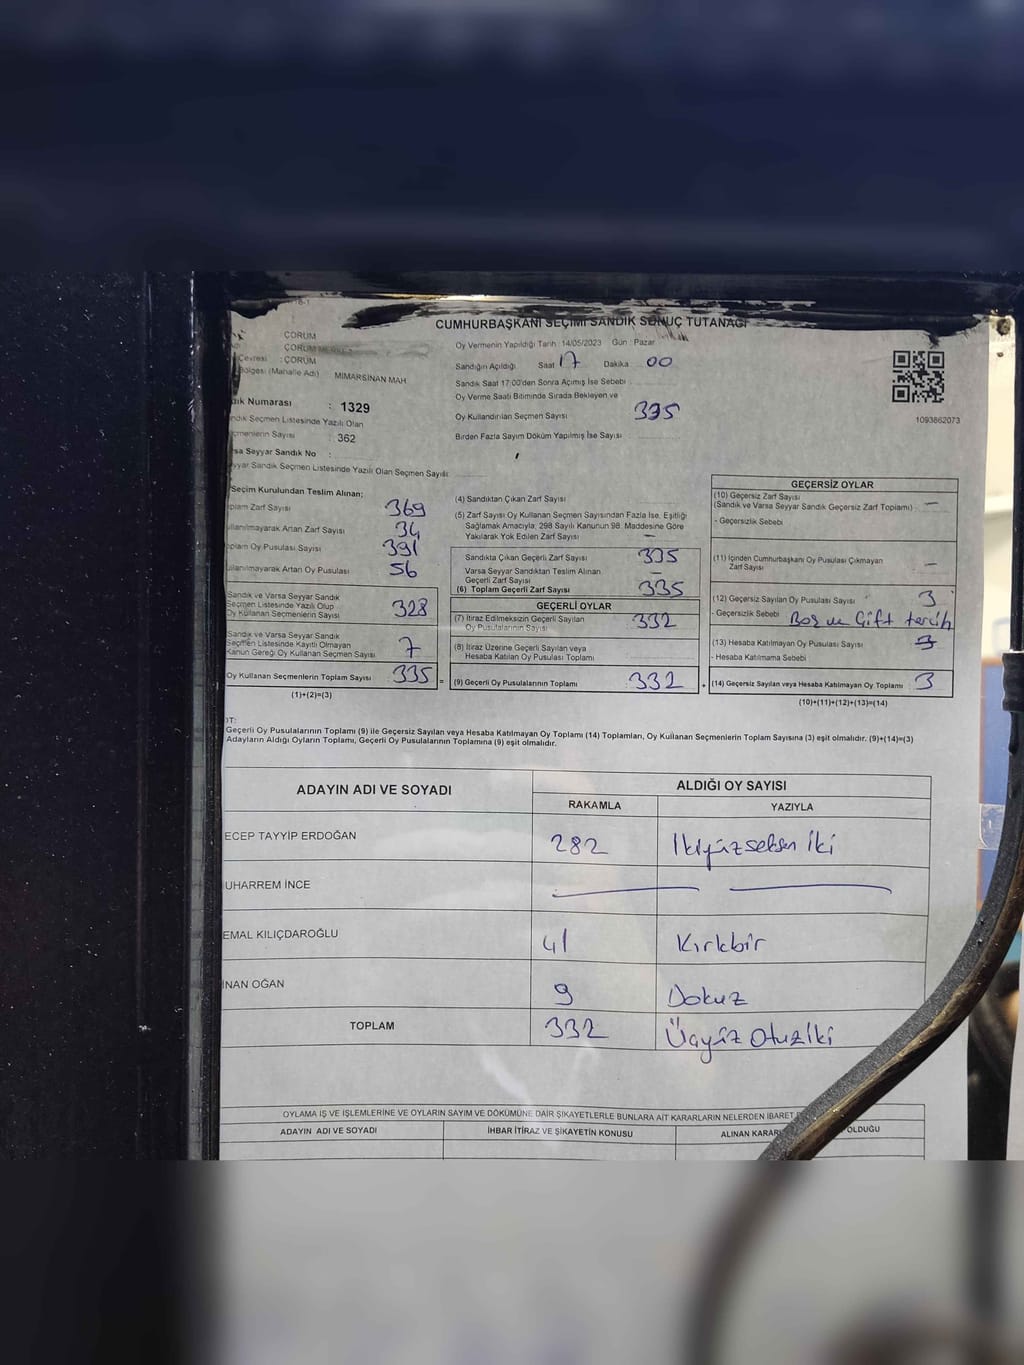 18-1
CUMHURBAŞKANI SEÇİMİ SANDIK SONUÇ TUTANAĞI
ÇORUM
ÇORUM MERKEZ
Çevresi : ÇORUM
Bölgesi (Mahalle Adı) MİMARSİNAN MAH
Numarası : 1329
Seçmen Listesinde Yazılı Olan
Sayısı : 362
Seyyar Sandık No :
Seyyar Sandık Seçmen Listesinde Yazılı Olan Seçmen Sayısı
Oy Vermenin Yapıldığı Tarih :14/05/2023 Gün : Pazar
Sandığın Açıldığı Saat 17 Dakika 00
Sandık Saat 17:00'den Sonra Açımış İse Sebebi
Oy Verme Saati Bitiminde Sırada Bekleyen ve
Oy Kullandırılan Seçmen Sayısı 335
Birden Fazla Sayım Döküm Yapılmış İse Sayısı
1093862073
Seçim Kurulundan Teslim Alınan;
Zarf Sayısı 369
Artan Zarf Sayısı 34
Oy Pusulası Sayısı 391
Artan Oy Pusulası 56
Sandık ve Varsa Seyyar Sandık
Seçmen Listesinde Yazılı Olup
Oy Kullanan Seçmenlerin Sayısı 328
Sandık ve Varsa Seyyar Sandık
Seçmen Listesinde Kayıtlı Olmayan
Kanun Gereği Oy Kullanan Seçmen Sayısı 7
Oy Kullanan Seçmenlerin Toplam Sayısı 335 =
(1)+(2)=(3)
(4) Sandıktan Çıkan Zarf Sayısı
(5) Zarf Sayısı Oy Kullanan Seçmen Sayısından Fazla İse, Eşitliği
Sağlamak Amacıyla, 298 Sayılı Kanunun 98. Maddesine Göre
Yakılarak Yok Edilen Zarf Sayısı –
Sandıkta Çıkan Geçerli Zarf Sayısı 335
Varsa Seyyar Sandıktan Teslim Alınan
Geçerli Zarf Sayısı –
(6) Toplam Geçerli Zarf Sayısı 335
GEÇERLİ OYLAR
(7) İtiraz Edilmeksizin Geçerli Sayılan
Oy Pusulalarının Sayısı 332
(8) İtiraz Üzerine Geçerli Sayılan veya
Hesaba Katılan Oy Pusulası Toplamı
(9) Geçerli Oy Pusulalarının Toplamı 332 +
GEÇERSİZ OYLAR
(10) Geçersiz Zarf Sayısı
(Sandık ve Varsa Seyyar Sandık Geçersiz Zarf Toplamı) –
- Geçersizlik Sebebi
(11) İçinden Cumhurbaşkanı Oy Pusulası Çıkmayan
Zarf Sayısı –
(12) Geçersiz Sayılan Oy Pusulası Sayısı 3
- Geçersizlik Sebebi Boş ve Çift tercih
(13) Hesaba Katılmayan Oy Pusulası Sayısı
- Hesaba Katılmama Sebebi
(14) Geçersiz Sayılan veya Hesaba Katılmayan Oy Toplamı 3
(10)+(11)+(12)+(13)=(14)
Geçerli Oy Pusulalarının Toplamı (9) ile Geçersiz Sayılan veya Hesaba Katılmayan Oy Toplamı (14) Toplamları, Oy Kullanan Seçmenlerin Toplam Sayısına (3) eşit olmalıdır. (9)+(14)=(3)
Adayların Aldığı Oyların Toplamı, Geçerli Oy Pusulalarının Toplamına (9) eşit olmalıdır.
ADAYIN ADI VE SOYADI ALDIĞI OY SAYISI
RAKAMLA YAZIYLA
ECEP TAYYİP ERDOĞAN 282 İkiyüzseksen iki
UHARREM İNCE
EMAL KILIÇDAROĞLU 41 Kırkbir
İNAN OĞAN 9 Dokuz
TOPLAM 332 Üçyüz Otuziki
OYLAMA İŞ VE İŞLEMLERİNE VE OYLARIN SAYIM VE DÖKÜMÜNE DAİR ŞİKAYETLERLE BUNLARA AİT KARARLARIN NELERDEN İBARET
ADAYIN ADI VE SOYADI İHBAR İTİRAZ VE ŞİKAYETİN KONUSU ALINAN KARAR OLDUĞU